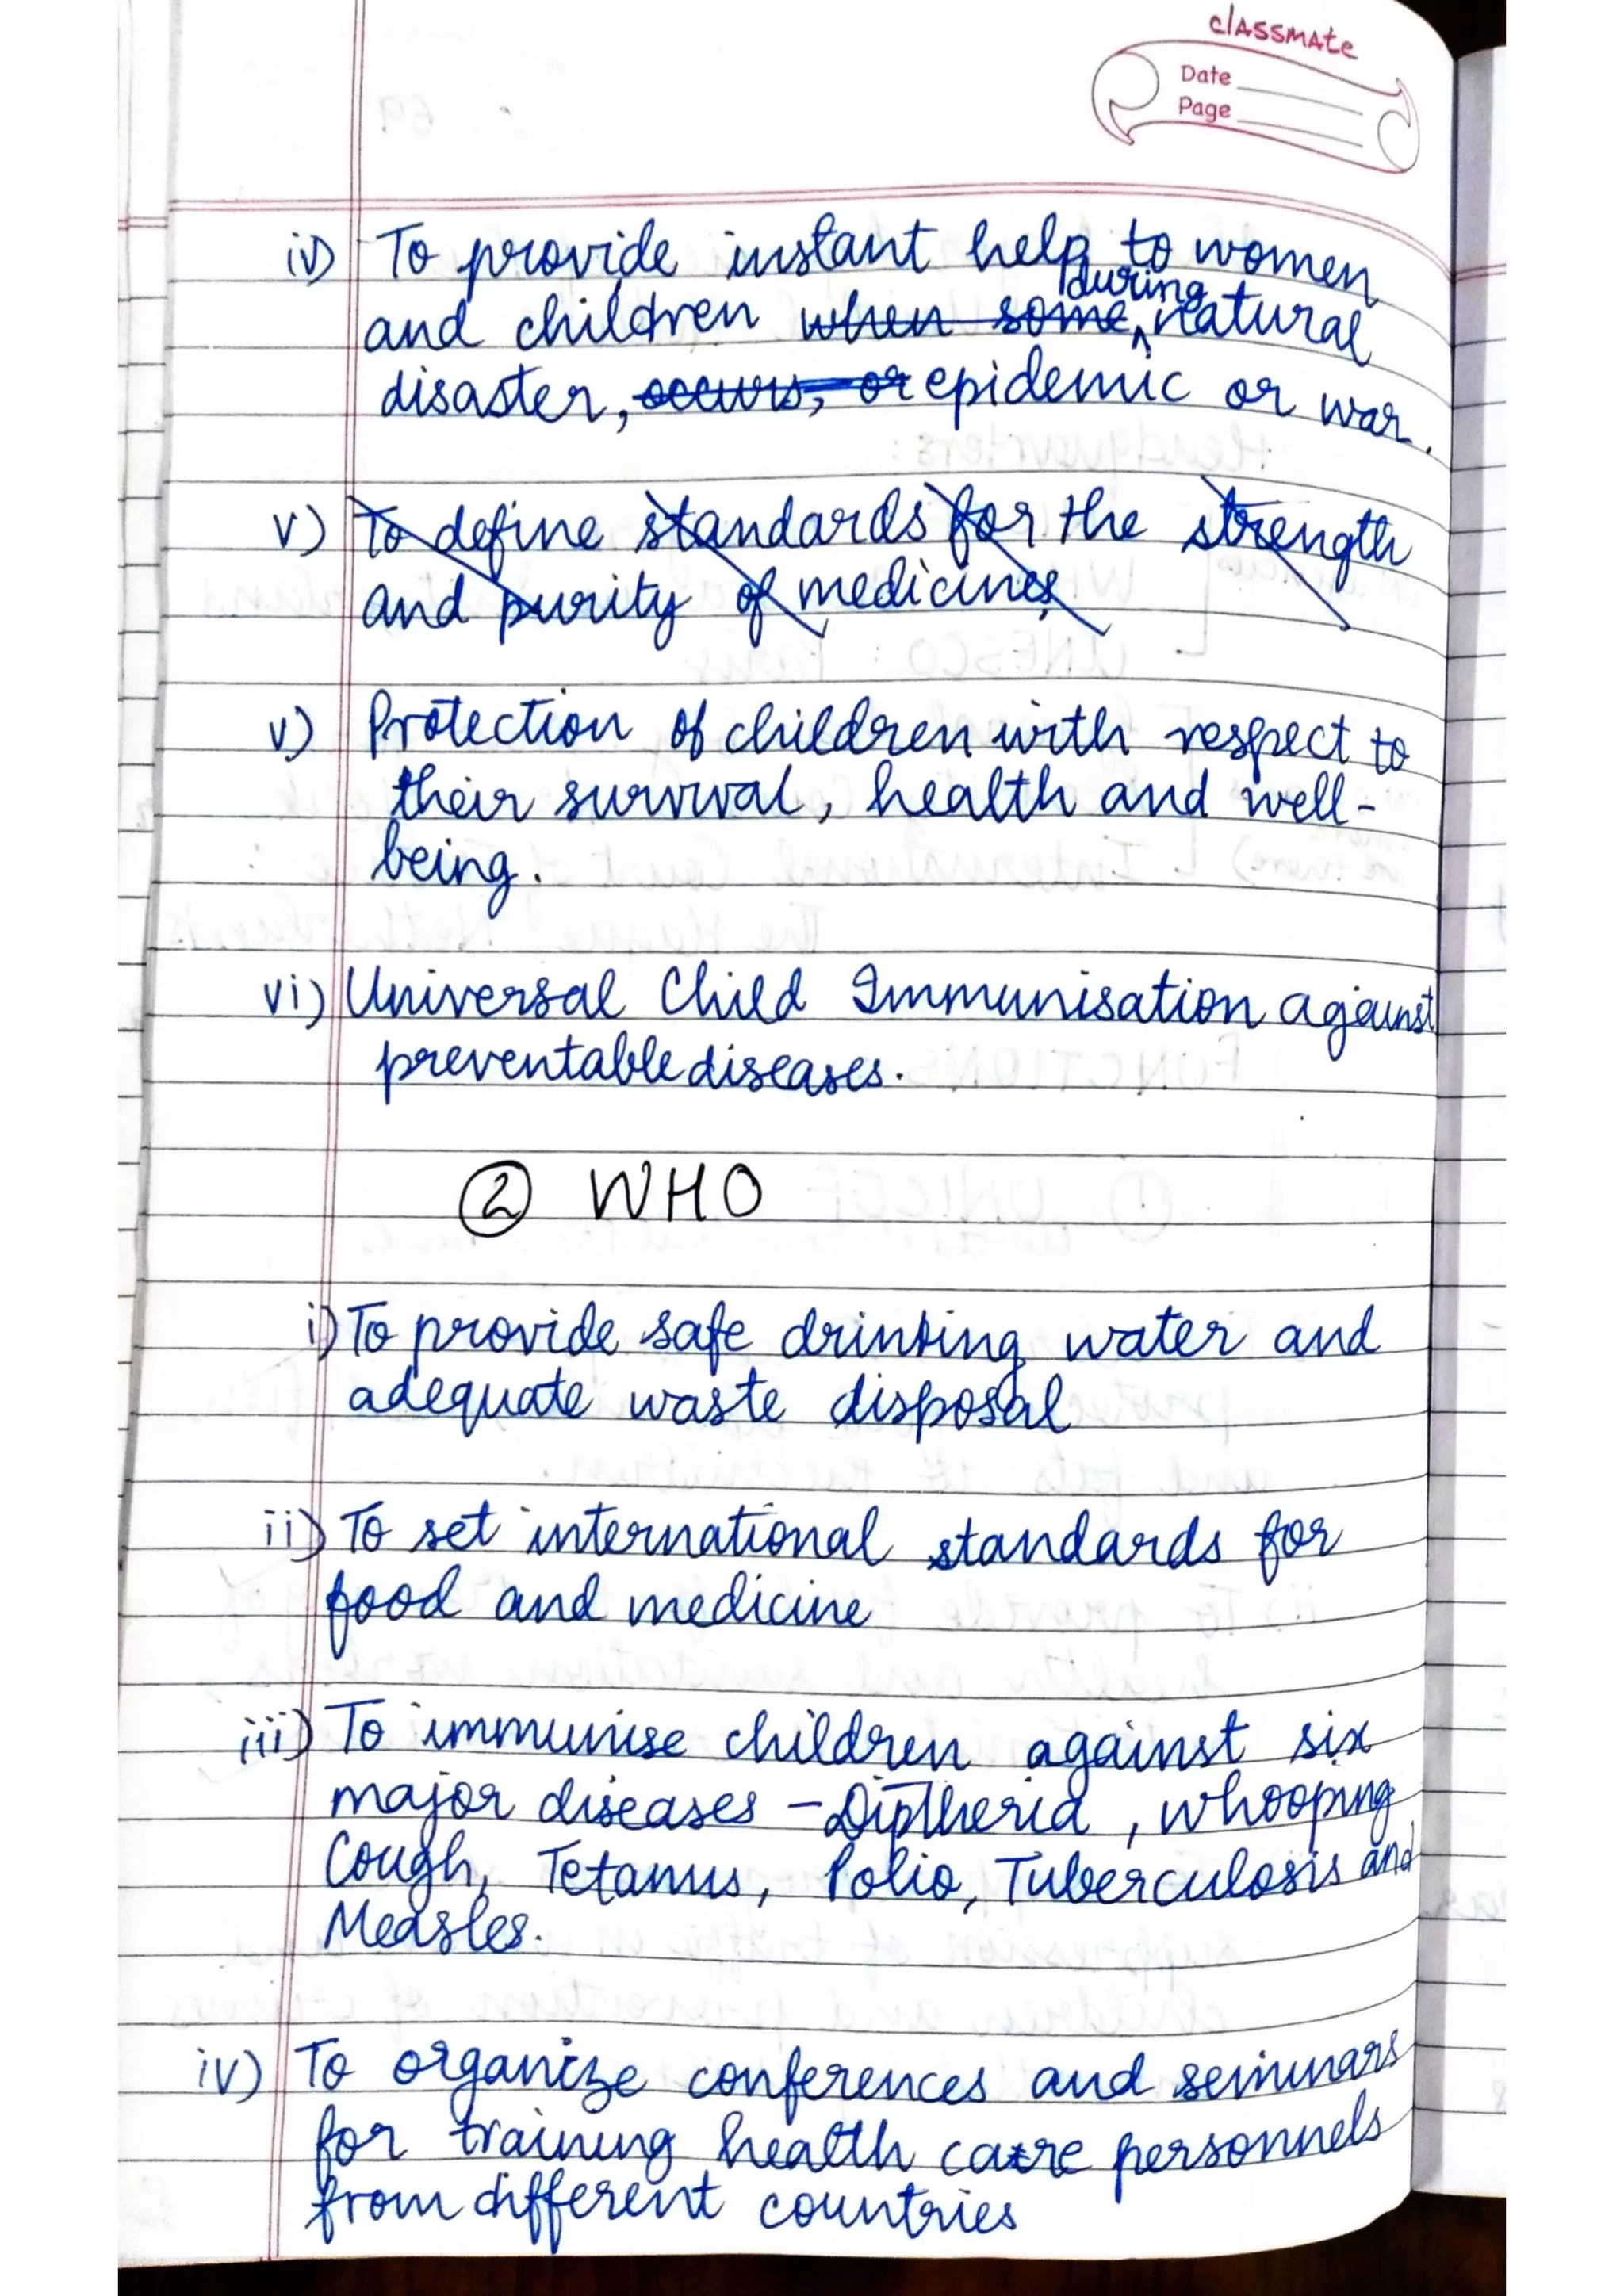 classmate
Date
Page
iv) To provide instant help to women
during
and children when some natural
disaster, occurs, or epidemic or war.
v) To define standards for the strength
and purity of medicines
v) Protection of children with respect to
their survival, health and well-
being.
vi) Universal Child Immunisation against
preventable diseases.
② WHO
i) To provide safe drinking water and
adequate waste disposal
ii) To set international standards for
food and medicine
iii) To immunise children against six
major diseases - Diptheria, whooping
Cough, Tetanus, Polio, Tuberculosis and
Measles.
iv) To organize conferences and seminars
for training health care personnels
from different countries